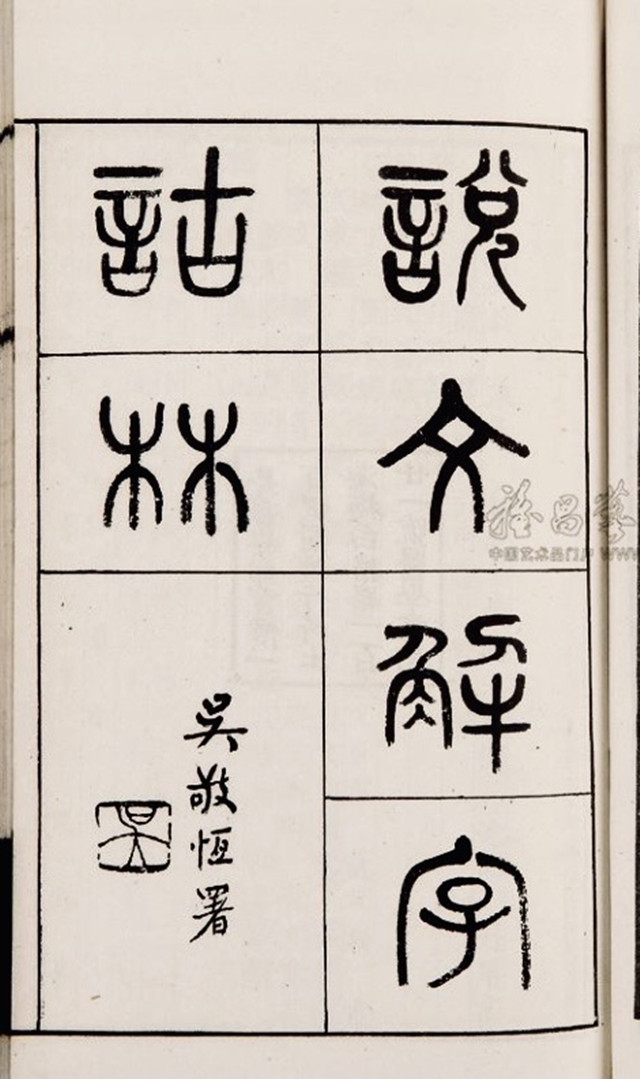 說文解字
詁林
吳敬恆署
吳
昌藝
中国艺术品门户 WWW